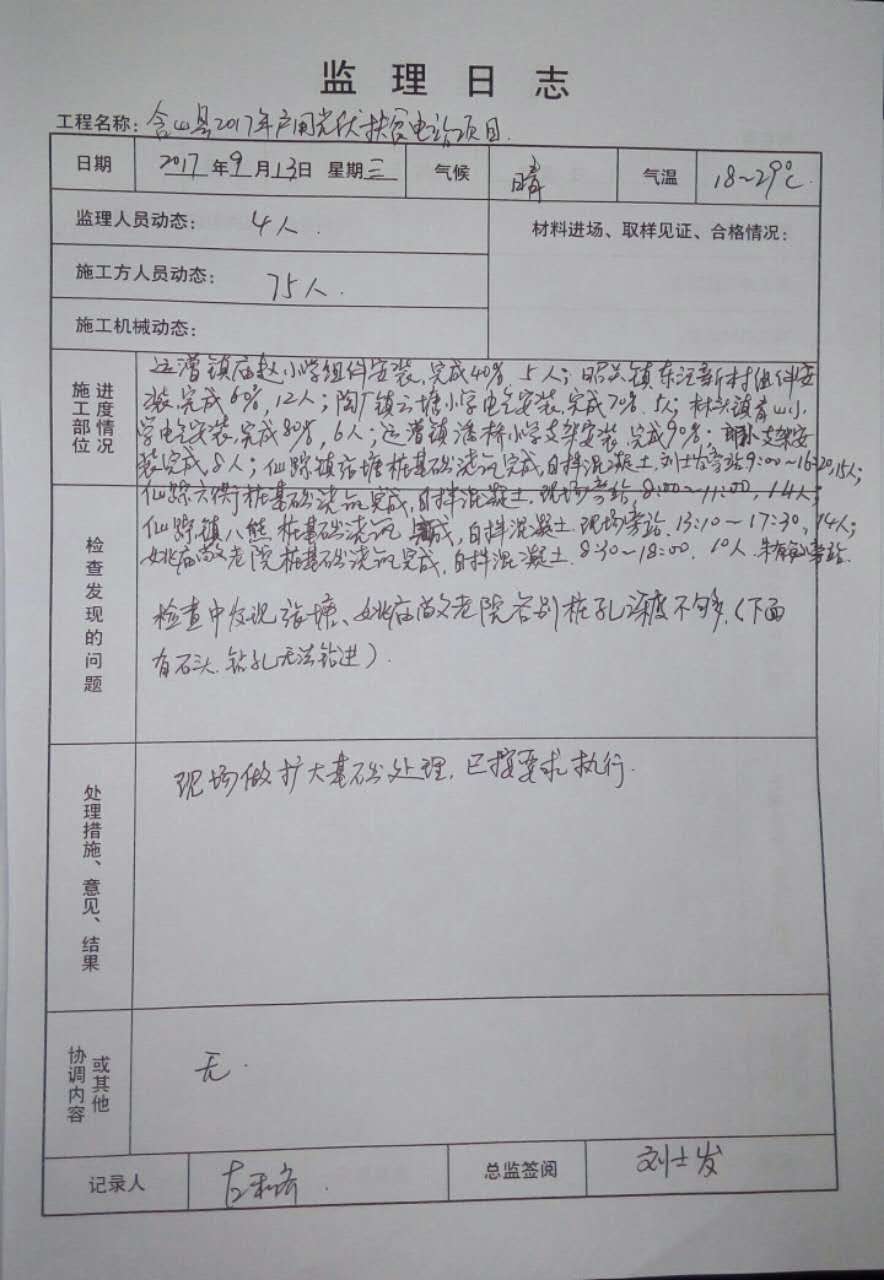 监理日志
工程名称：含山县2017年户用光伏扶贫电站项目.
日期 2017年9月13日 星期三 气候 晴 气温 18~29℃.
监理人员动态： 4人. 材料进场、取样见证、合格情况：
施工方人员动态： 75人.
施工机械动态：
施工部位 进度情况
运漕镇庙赵小学组件安装,完成40% 5人；昭关镇东汪新村组件安
装,完成60%,12人；陶厂镇云塘小学电气安装,完成70%.5人；林头镇青山小
学电气安装,完成80%,6人；运漕镇潘桥小学支架安装,完成90%； 支架安
装完成8人；仙踪镇张塘桩基础浇筑完成,自拌混凝土.刘士发旁站9:00~16:20,15人；
仙踪六衖桩基础浇筑完成,自拌混凝土.现场旁站,8:00~11:00,14人；
仙踪镇八熊桩基础浇筑 完成,自拌混凝土.现场旁站.13:10~17:30,14人；
姚庙敬老院桩基础浇筑完成,自拌混凝土.8:30~18:00. 10人. 旁站.
检查发现的问题
检查中发现张塘、姚庙敬老院个别桩孔深度不够.(下面
有石头.钻孔无法钻进).
处理措施、意见、结果
现场做扩大基础处理,已按要求执行.
协调内容 或其他
无.
记录人 总监签阅 刘士发